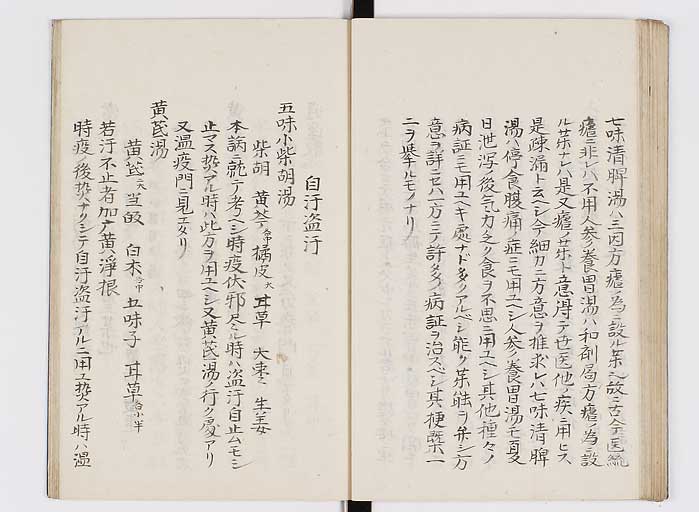 七味清脾湯ハ三因方瘧ノ為ニ設ル薬也故ニ古今医統
瘧ニ非レハ不用人参養胃湯ハ和剤局方瘧ノ為ニ設
ルサナレハ是又瘧ノ薬ト意得テ世医他ノ疾ニ用ヒス
是疎漏ト云ヘシ今細カニ方意ヲ推求レハ七味清脾
湯ハ停食腹痛ノ症ニモ用ユヘシ人参養胃湯モ夏
日泄瀉ノ後気力乏ク食ヲ不思ニ用ユヘシ其他種々ノ
病証ニモ用ユヘキ処ナド多クアルベシ能ク薬能ヲ弁シ方
意ヲ詳ニセハ一方ニテ許多ノ病証ヲ治スベシ其梗槩一
二ヲ挙ルモノナリ
自汗盗汗
五味小柴胡湯
柴胡 黄芩各中 橘皮大 甘草 大棗 生姜
本病ニ就テ考ヘシ時疫伏邪尽ル時ハ盗汗自止ムモシ
止マス熱アル時ハ此方ヲ用ユヘシ又黄芪湯ノ行ク処アリ
又温疫門ニ見エタリ
黄芪湯
黄芪大 当皈 白朮各中 五味子 甘草各小半
若汗不止者加麻黄浄根
時疫ノ後熱ナクシテ自汗盗汗アルニ用ユ熱アル時ハ温